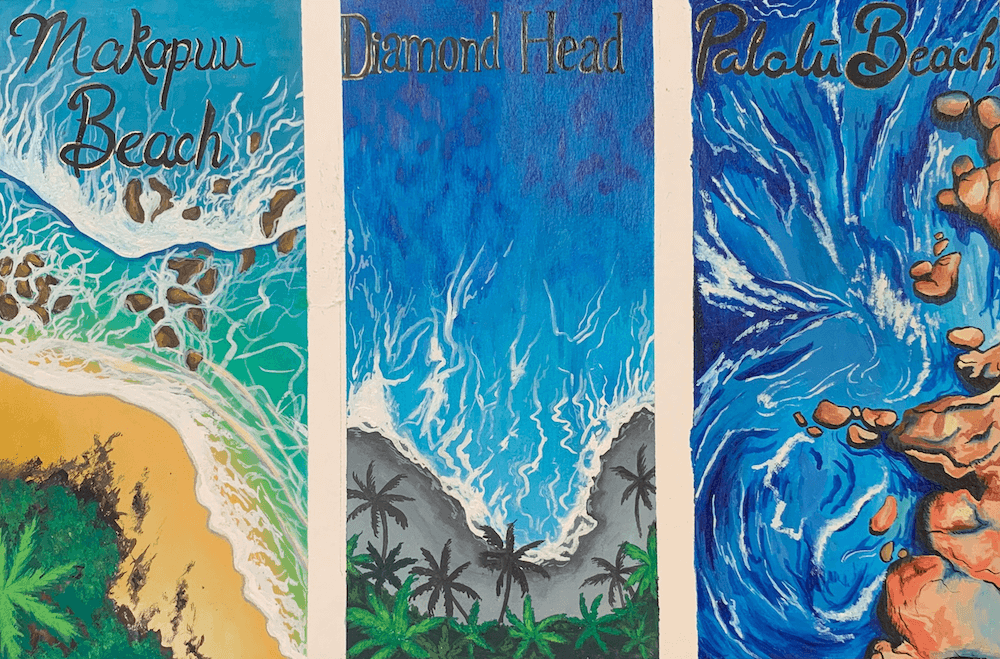 Makapuu
Beach
Diamond Head
Palolū Beach